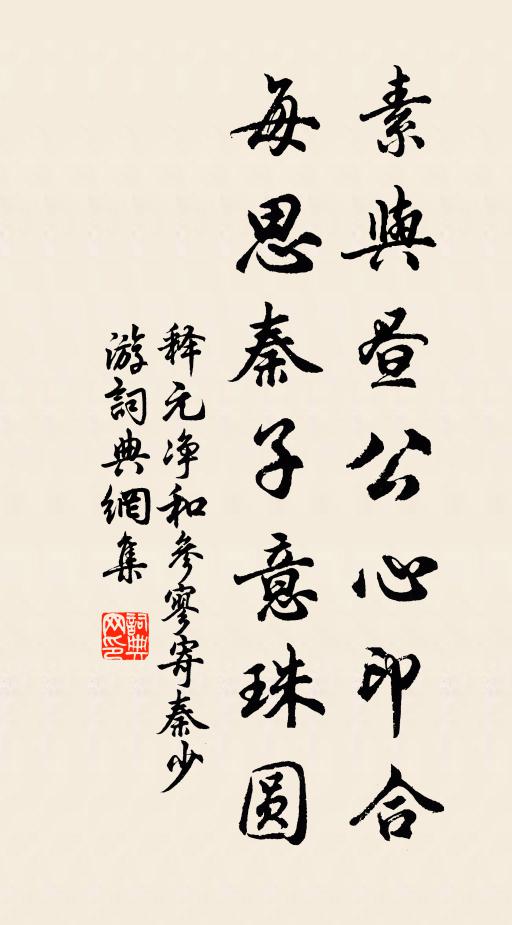 素與昼公心印合
每思秦子意珠圆
释元净和參寥寄秦少
游詞典網集
詞典
网印